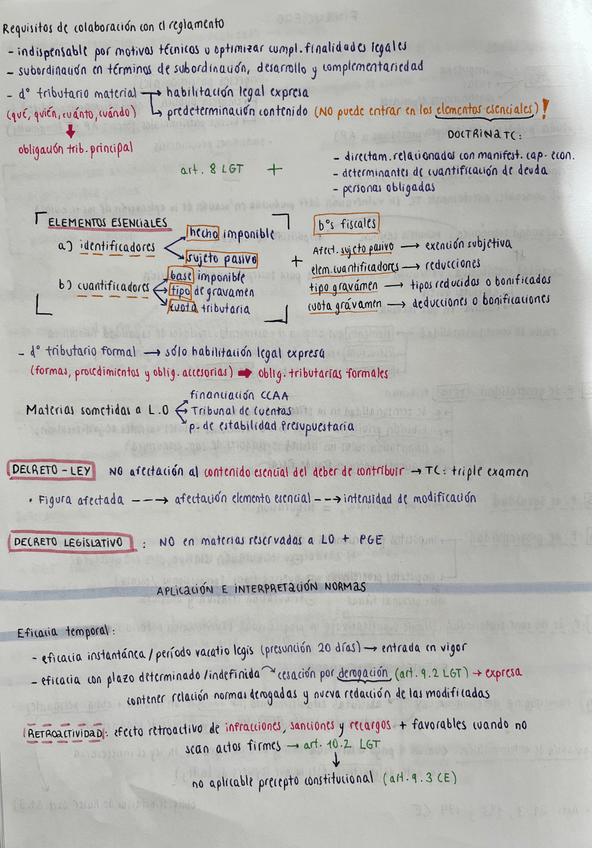 Requisitos de colaboración con el reglamento
- indispensable por motivos técnicos u optimizar cumpl. finalidades legales
- subordinación en términos de subordinación, desarrollo y complementariedad
- dº tributario material → habilitación legal expresa
(qué, quién, cuánto, cuándo) ↳ predeterminación contenido (NO puede entrar en los elementos esenciales)!
obligación trib. principal
DOCTRINA TC:
art. 8 LGT +
- directam. relacionados con manifest. cap. econ.
- determinantes de cuantificación de deuda
- personas obligadas
ELEMENTOS ESENCIALES
a) identificadores
hecho imponible
sujeto pasivo
b) cuantificadores
base imponible
tipo de gravamen
cuota tributaria
+
bºs fiscales
Afect. sujeto pasivo → exención subjetiva
elem. cuantificadores → reducciones
tipo gravámen → tipos reducidos o bonificados
cuota gravamen → deducciones o bonificaciones
- dº tributario formal → sólo habilitación legal expresa
(formas, procedimientos y oblig. accesorias) → oblig. tributarias formales
Materias sometidas a L.O
financiación CCAA
Tribunal de Cuentas
p. de estabilidad Presupuestaria
DECRETO - LEY NO afectación al contenido esencial del deber de contribuir → TC: triple examen
• Figura afectada ---> afectación elemento esencial --> intensidad de modificación
DECRETO LEGISLATIVO : NO en materias reservadas a LO + PGE
APLICACIÓN E INTERPRETACIÓN NORMAS
Eficacia temporal:
- eficacia instantánea / período vacatio legis (presunción 20 días) → entrada en vigor
- eficacia con plazo determinado / indefinida → cesación por derogación (art. 9.2 LGT) → expresa
contener relación normas derogadas y nueva redacción de las modificadas
RETROACTIVIDAD: efecto retroactivo de infracciones, sanciones y recargos + favorables cuando no
sean actos firmes → art. 10.2 LGT
↓
no aplicable precepto constitucional (art. 9.3 CE)